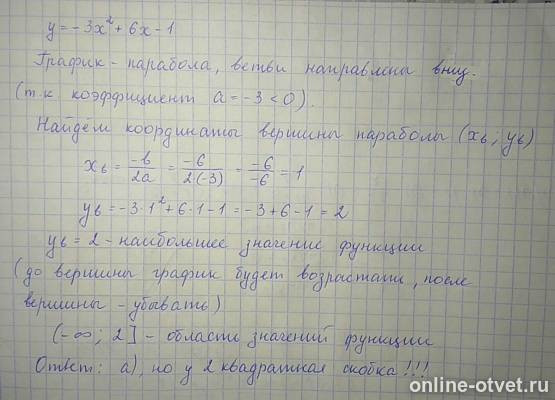 y = -3x² + 6x - 1
График - парабола, ветви направлены вниз.
(т.к коэффициент a = -3 < 0).
Найдём координаты вершины параболы (xв; yв)
xв = -b/2a = -6/2(-3) = -6/-6 = 1
yв = -3·1² + 6·1 - 1 = -3 + 6 - 1 = 2
yв = 2 - наибольшее значение функции
(до вершины график будет возрастать, после
вершины - убывать)
(-∞; 2] - область значений функции
Ответ: а), но у 2 квадратная скобка!!!
online-otvet.ru